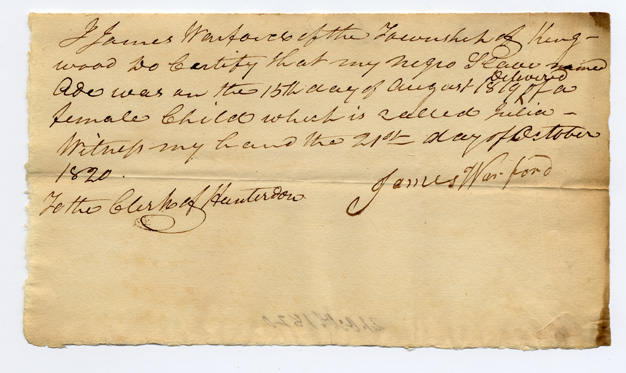 I James Warford of the Township of King-
wood Do Certify that my negro Slave named
Ade was on the 15th day of August 1819 Delivered of a
female Child which is called Julia -
Witness my hand the 21st day of October
1820.
James Warford
To the Clerk of Hunterdon